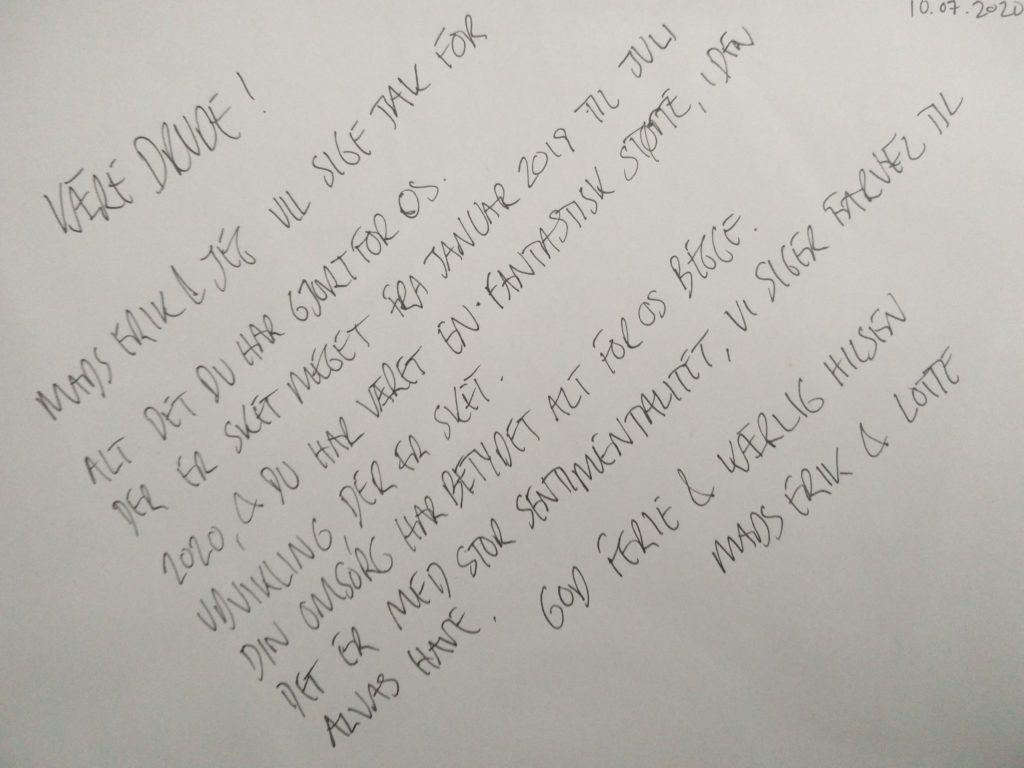 10.07.2020
KÆRE DRUDE!
MADS ERIK & JEG VIL SIGE TAK FOR
ALT DET DU HAR GJORT FOR OS.
DER ER SKET MEGET FRA JANUAR 2019 TIL JULI
2020, & DU HAR VÆRET EN FANTASTISK STØTTE, I DEN
UDVIKLING, DER ER SKET.
DIN OMSORG HAR BETYDET ALT FOR OS BEGGE.
DET ER MED STOR SENTIMENTALITET, VI SIGER FARVEL TIL
ALVAS HAVE. GOD FERIE & KÆRLIG HILSEN
MADS ERIK & LOTTE